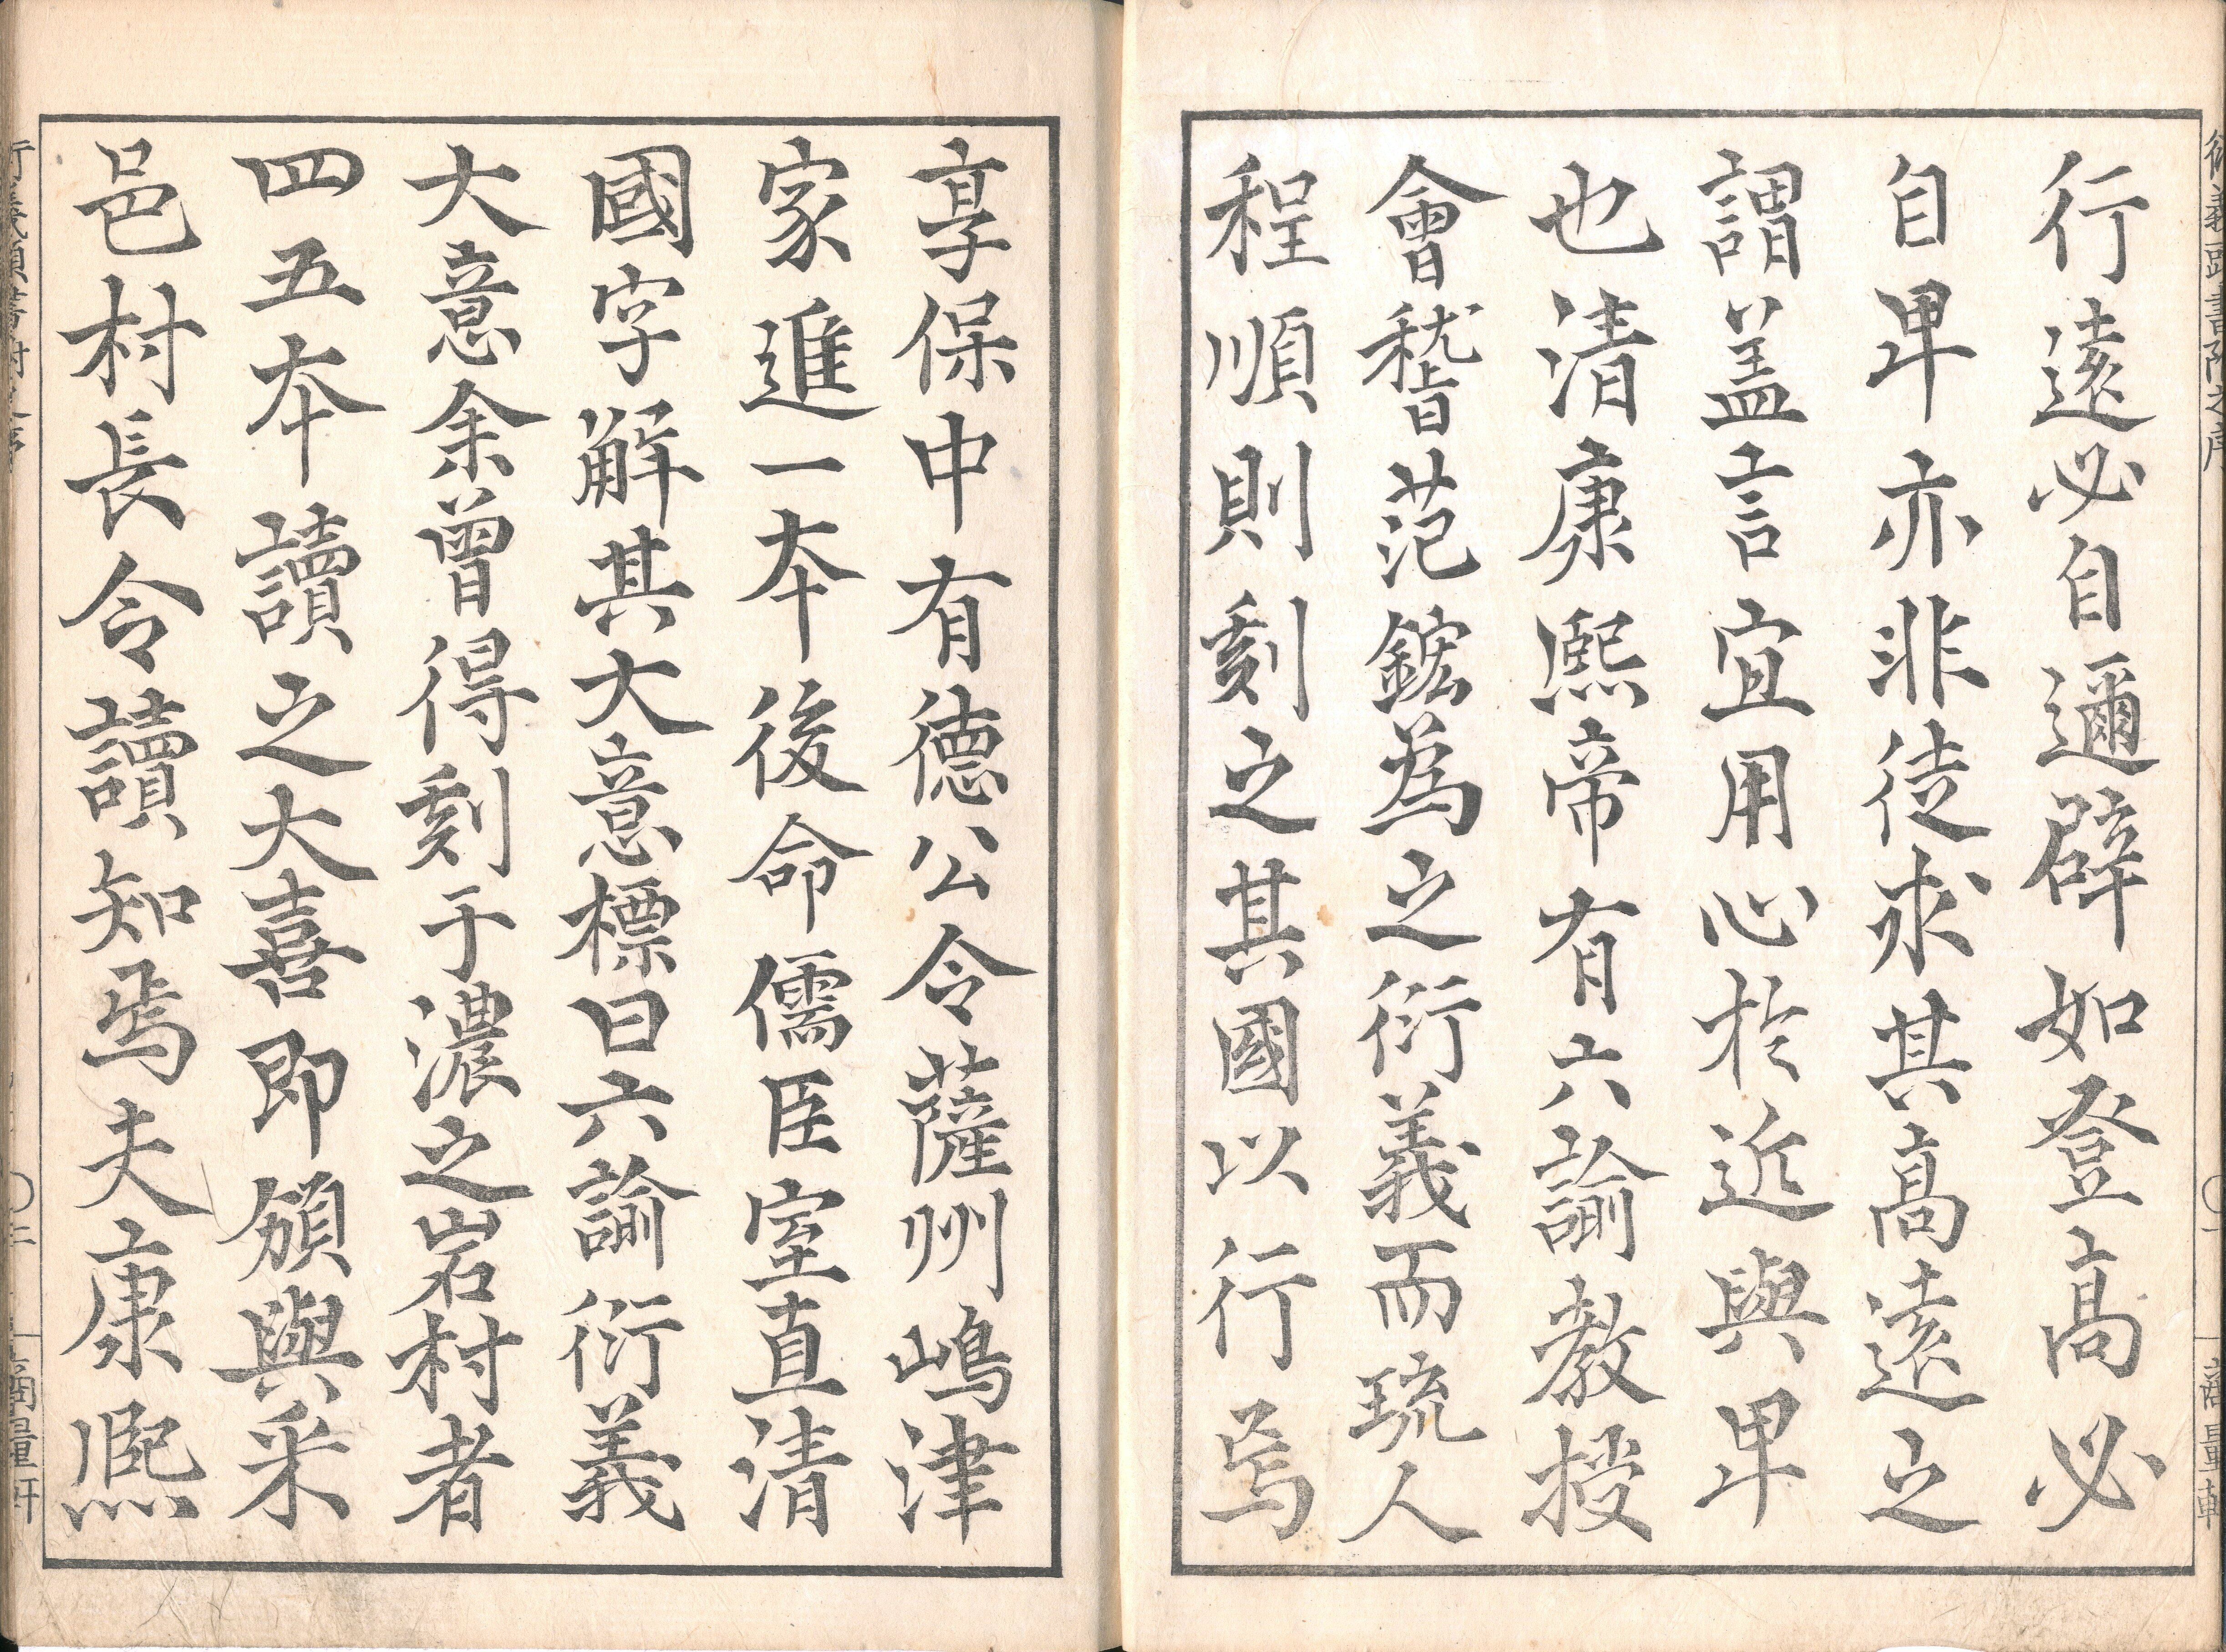 行遠必自邇辟如登高必
自卑亦非徒求其高遠之
謂盖言宜用心於近與卑
也清康熙帝有六諭教授
會稽范鋐為之衍義而琉人
程順則刻之其國以行焉
享保中有德公令薩州嶋津
家進一本後命儒臣室直清
國字解其大意標曰六諭衍義
大意余曾得刻于濃之岩村者
四五本讀之大喜即頒與采
邑村長令讀知焉夫康熙